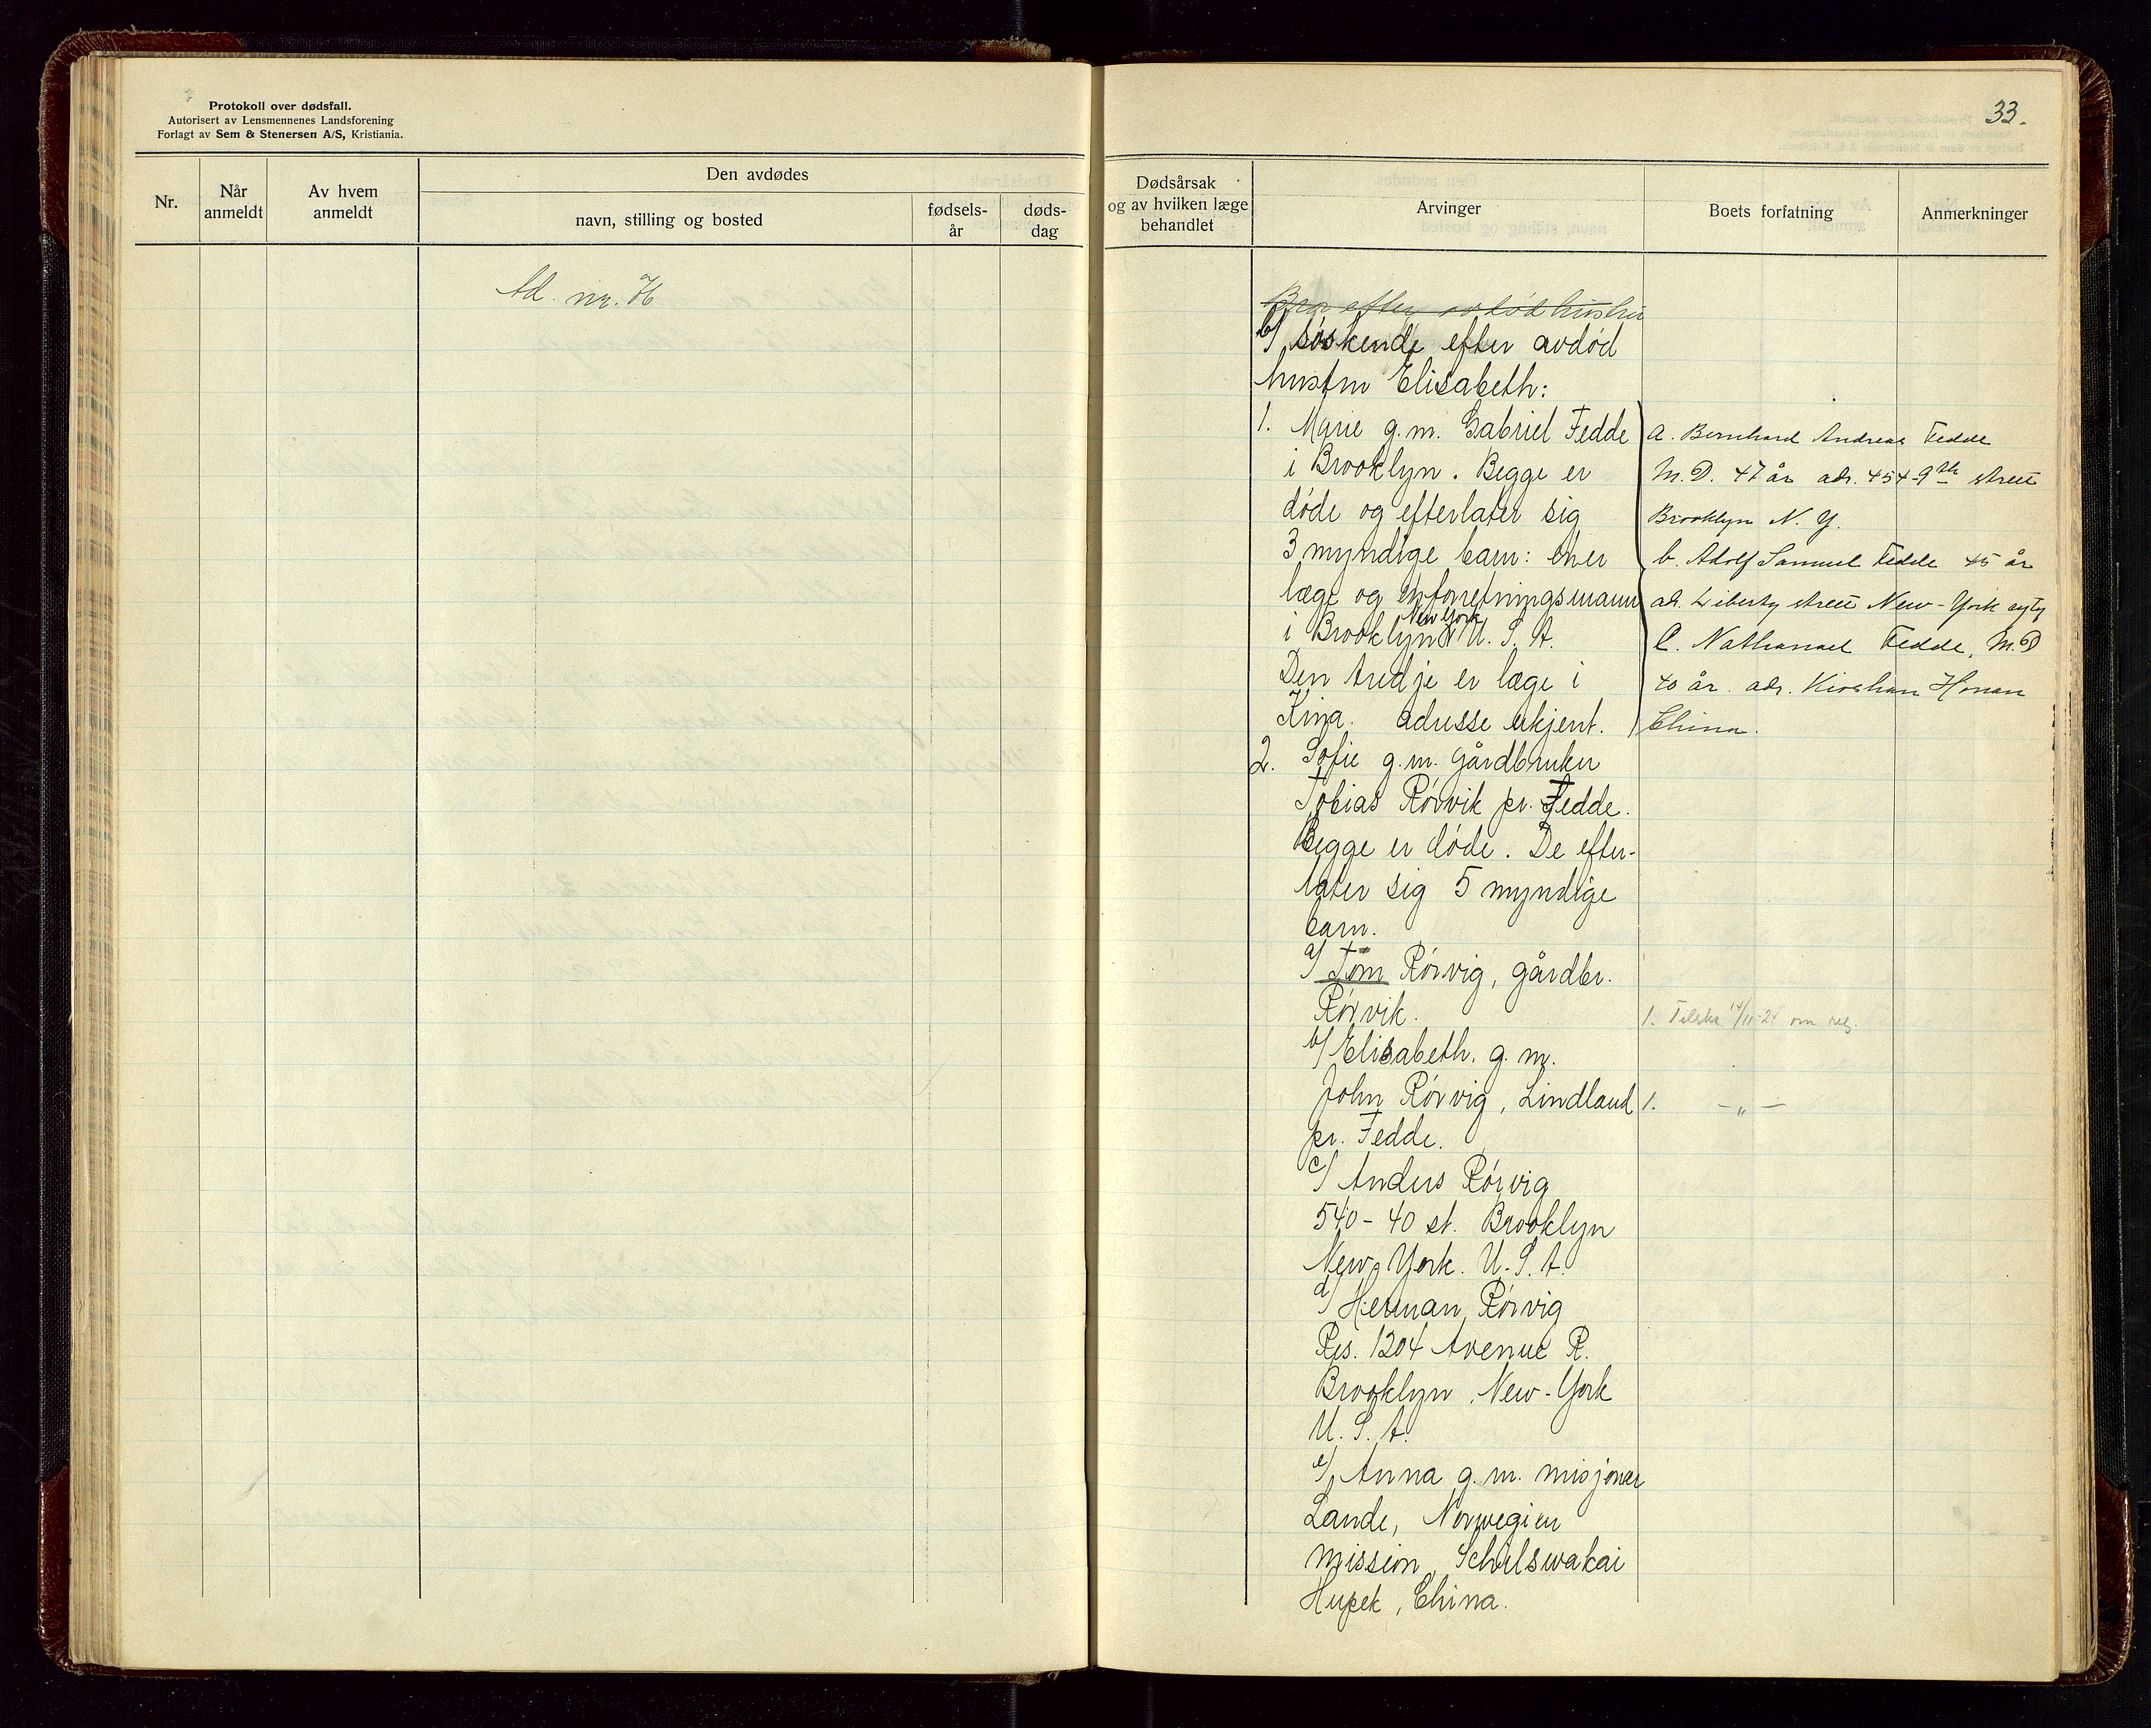 Protokoll over dødsfall.
Autorisert av Lensmennenes Landsforening
Forlagt av Sem & Stenersen A/S, Kristiania.
Nr.
Når anmeldt
Av hvem anmeldt
Den avdødes
navn, stilling og bosted
fødsels-år
døds-dag
Ad. nr. 76
33.
Dødsårsak
og av hvilken læge
behandlet
Arvinger
Boets forfatning
Anmerkninger
Bror efter avdød hustru
b/ søskende efter avdød
hustru Elisabeth:
1. Marie g.m. Gabriel Fedde
i Brooklyn. Begge er
døde og efterlater sig
3 myndige barn: en er
læge og en forretningsmann
i Brooklyn New York U. S. A.
Den tredje er læge i
Kina. adresse ukjent.
2. Sofie g.m. gårdbruker
Tobias Rørvik pr. Fedde.
Begge er døde. De efter-
later sig 5 myndige
barn.
a/ Tom Rørvig, gårdbr.
Rørvik.
b/ Elisabeth. g. m.
John Rørvig, Lindland
pr. Fedde.
c/ Anders Rørvig
540-40 st. Brooklyn
New-York. U. S. A.
d/ Herman Rørvig
Res. 1204 Avenue R.
Brooklyn, New-York
U. S. A.
e/ Anna g. m. misjonær
Lande, Norwegien
mission, Schulswakai
Hupek, China.
a. Bernhard Andreas Fedde
M.D. 47 år adr. 454-9th street
Brooklyn N. Y.
b. Adolf Samuel Fedde 45 år
ad. Liberty street New-York cyty
C. Nathanael Fedde, M.D
40 år. adr. Kioshan Honan
China.
1. Tilskr. 14/11-24 om
1. -„-